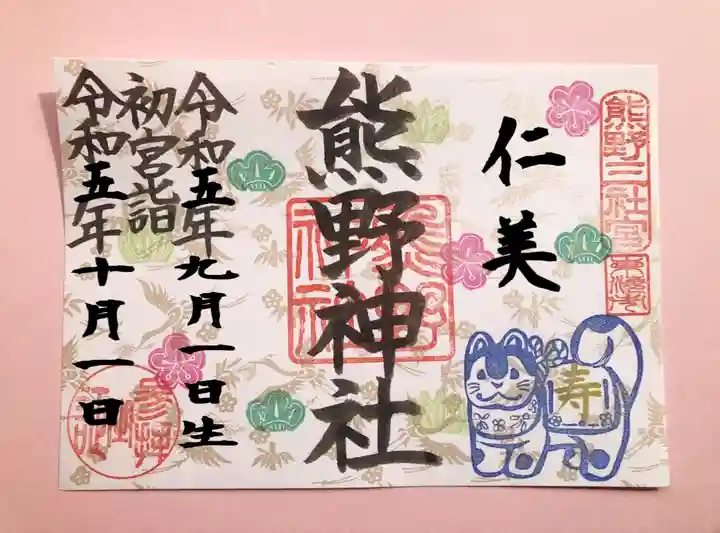 熊野三社宮
仁美
寿
熊野神社
熊野
神社
令和五年九月一日生
初宮詣
令和五年十月一日
参拝